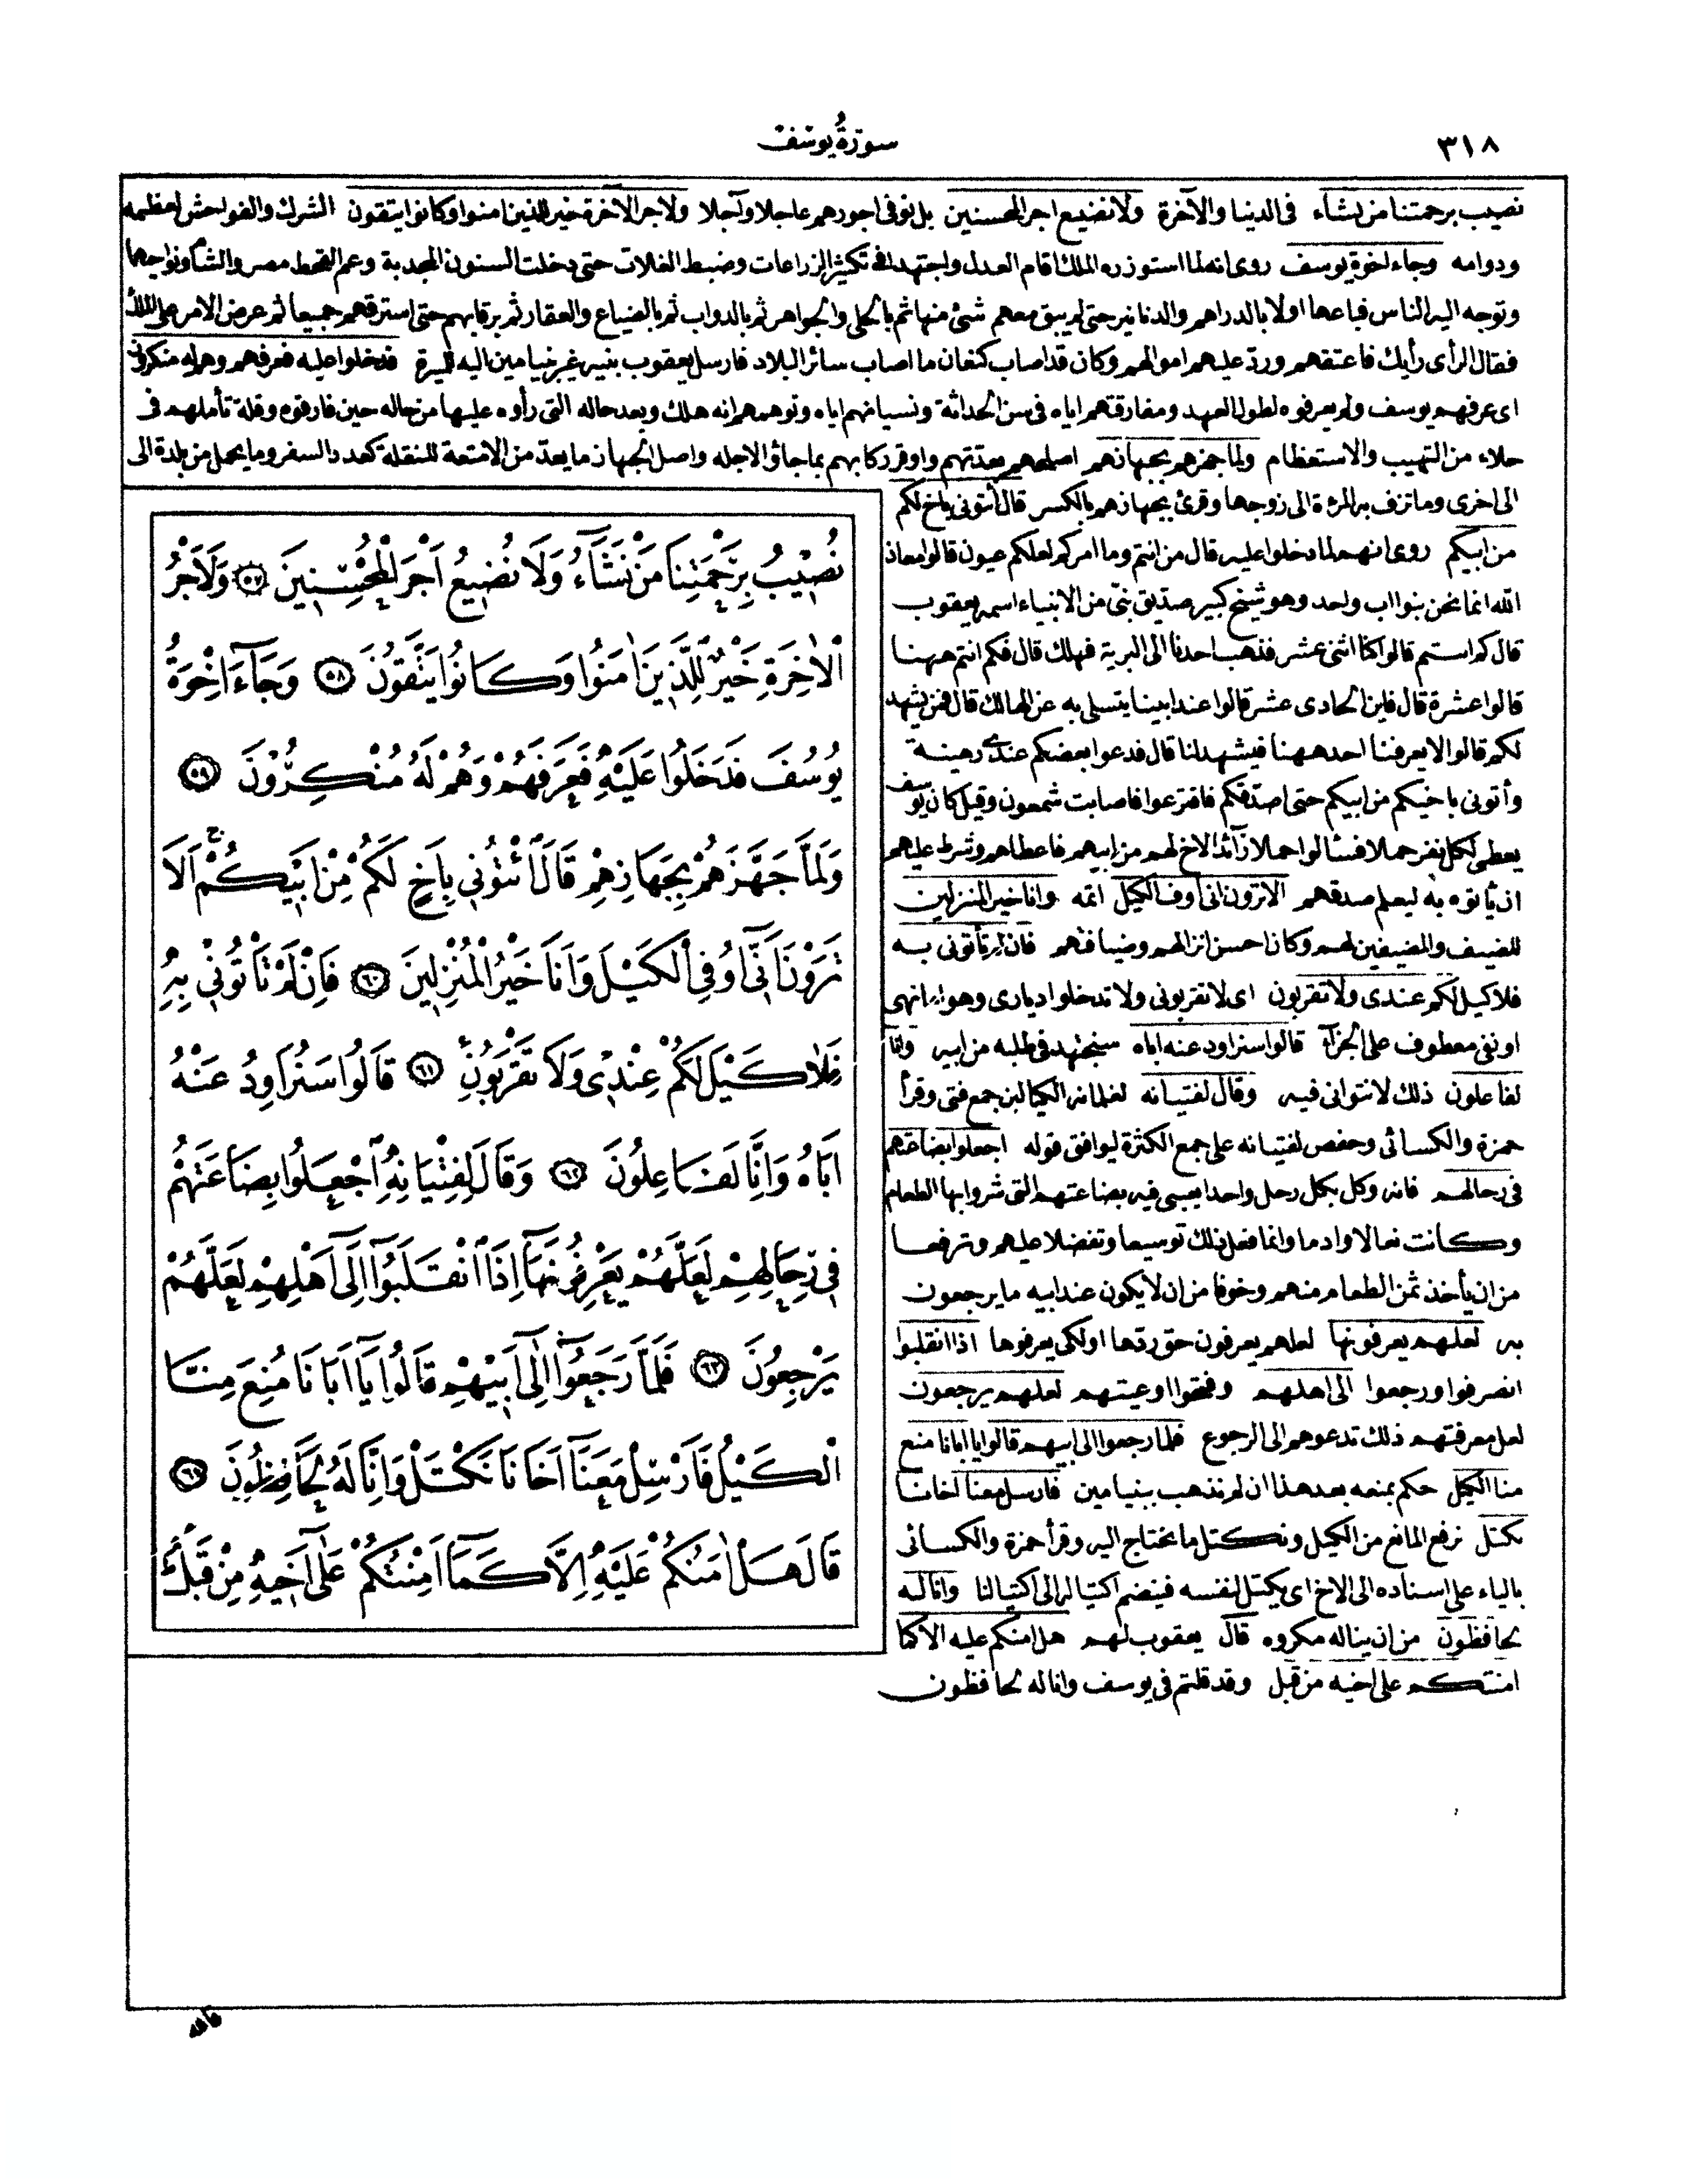 ٣١٨
سورة يوسف
نصيب برحمتنا من نشاء في الدنيا والآخرة ولا نضيع اجر المحسنين بل نوفى اجورهم عاجلا وآجلا ولاجر الآخرة خير للذين امنوا وكانوا يتقون الشرك والفواحش لعظمه
ودوامه وجاء اخوة يوسف روى انه لما استوزره الملك اقام العدل واجتهد فى تكثير الزراعات وضبط الغلات حتى دخلت السنون المجدبة وعم القحط مصر والشام ونواحيها
وتوجه اليه الناس فباعها اولا بالدراهم والدنانير حتى لم يبق معهم شئ منها ثم بالحلى والجواهر ثم بالدواب ثم بالضياع والعقار ثم برقابهم حتى استرقهم جميعا ثم عرض الامر على الملك
فقال الرأى رأيك فاعتقهم ورد عليهم اموالهم وكان قد اصاب كنعان ما اصاب سائر البلاد فارسل يعقوب بنيه غير بنيامين اليه للميرة فدخلوا عليه فعرفهم وهم له منكرون
اى عرفهم يوسف ولم يعرفوه لطول العهد ومفارقتهم اياه فى سن الحداثة ونسيانهم اياه وتوهمهم انه هلك وبعد حاله التى رأوه عليها من حاله حين فارقوه وقلة تأملهم فى
حلاه من التهيب والاستعظام ولما جهزهم بجهازهم اصلحهم بعدتهم واوقر ركابهم بما جاؤا لاجله واصل الجهاز ما يعد من الامتعة للنقلة كعدد السفر وما يحمل من بلدة الى
الى اخرى وما تزف به المرءة الى زوجها وقرئ بجهازهم بالكسر قال أتونى باخ لكم
من ابيكم روى انهم لما دخلوا عليه قال من انتم وما امركم لعلكم عيون قالوا معاذ
الله انما نحن بنوا اب واحد وهو شيخ كبير صديق نبى من الانبياء اسمه يعقوب
قال كم انتم قالوا كنا اثنى عشر فذهب احدنا الى البرية فهلك قال فكم انتم ههنا
قالوا عشرة قال فاين الحادى عشر قالوا عند ابينا يتسلى به عن الهالك قال فمن يشهد
لكم قالوا لا يعرفنا احد ههنا فيشهد لنا قال فدعوا بعضكم عندى رهينة
وأتونى باخيكم من ابيكم حتى اصدقكم فاقترعوا فاصابت شمعون وقيل كان يوسف
يعطى لكل نفر حملا فسألوا حملا زائدا لاخ لهم من ابيهم فاعطاهم وشرط عليهم
ان يأتوه به ليعلم صدقهم الا ترون انى اوف الكيل اتمه وانا خير المنزلين
للضيف والمضيفين لهم وكان احسن انزالهم وضيافتهم فان لم تأتونى به
فلا كيل لكم عندى ولا تقربون اى لا تقربونى ولا تدخلوا ديارى وهو اما نهى
او نفى معطوف على الجزاء قالوا سنراود عنه اباه سنجتهد فى طلبه من ابيه وانا
لفاعلون ذلك لا نتوانى فيه وقال لفتيانه لغلمانه الكيالين جمع فتى وقرأ
حمزة والكسائى وحفص لفتيانه على جمع الكثرة ليوافق قوله اجعلوا بضاعتهم
فى رحالهم فانه وكل بكل رحل واحدا يعبى فيه بضاعتهم التى شروا بها الطعام
وكانت نعالا وادما وانما فعل ذلك توسيعا وتفضلا عليهم وترفعا
من ان يأخذ ثمن الطعام منهم وخوفا من ان لا يكون عند ابيه ما يرجعون
به لعلهم يعرفونها لعلهم يعرفون حق ردها او لكى يعرفوها اذا انقلبوا
انصرفوا ورجعوا الى اهلهم وفتحوا اوعيتهم لعلهم يرجعون
لعل معرفتهم ذلك تدعوهم الى الرجوع فلما رجعوا الى ابيهم قالوا يا ابانا منع
منا الكيل حكم بمنعه بعد هذا ان لم نذهب ببنيامين فارسل معنا اخانا
نكتل نرفع المانع من الكيل ونكتل ما نحتاج اليه وقرأ حمزة والكسائى
بالياء على اسناده الى الاخ اى يكتل لنفسه فينضم اكتياله الى اكتيالنا وانا له
لحافظون من ان يناله مكروه قال يعقوب لهم هل امنكم عليه الا كما
امنتكم على اخيه من قبل وقد قلتم فى يوسف وانا له لحافظون
نُصِيبُ بِرَحْمَتِنَا مَنْ نَشَاءُ وَلَا نُضِيعُ اَجْرَ الْمُحْسِنِينَ ٥٧ وَلَاَجْرُ
الْاٰخِرَةِ خَيْرٌ لِلَّذِينَ اٰمَنُوا وَكَانُوا يَتَّقُونَ ٥٨ وَجَاءَ اِخْوَةُ
يُوسُفَ فَدَخَلُوا عَلَيْهِ فَعَرَفَهُمْ وَهُمْ لَهُ مُنْكِرُونَ ٥٩
وَلَمَّا جَهَّزَهُمْ بِجَهَازِهِمْ قَالَ ائْتُونِي بِاَخٍ لَكُمْ مِنْ اَبِيكُمْ اَلَا
تَرَوْنَ اَنِّي اُوفِي الْكَيْلَ وَاَنَا خَيْرُ الْمُنْزِلِينَ ٦٠ فَاِنْ لَمْ تَأْتُونِي بِهِ
فَلَا كَيْلَ لَكُمْ عِنْدِي وَلَا تَقْرَبُونِ ٦١ قَالُوا سَنُرَاوِدُ عَنْهُ
اَبَاهُ وَاِنَّا لَفَاعِلُونَ ٦٢ وَقَالَ لِفِتْيَانِهِ اجْعَلُوا بِضَاعَتَهُمْ
فِي رِحَالِهِمْ لَعَلَّهُمْ يَعْرِفُونَهَا اِذَا انْقَلَبُوا اِلَى اَهْلِهِمْ لَعَلَّهُمْ
يَرْجِعُونَ ٦٣ فَلَمَّا رَجَعُوا اِلٰى اَبِيهِمْ قَالُوا يَا اَبَانَا مُنِعَ مِنَّا
الْكَيْلُ فَاَرْسِلْ مَعَنَا اَخَانَا نَكْتَلْ وَاِنَّا لَهُ لَحَافِظُونَ ٦٤
قَالَ هَلْ اٰمَنُكُمْ عَلَيْهِ اِلَّا كَمَا اَمِنْتُكُمْ عَلٰى اَخِيهِ مِنْ قَبْلُ